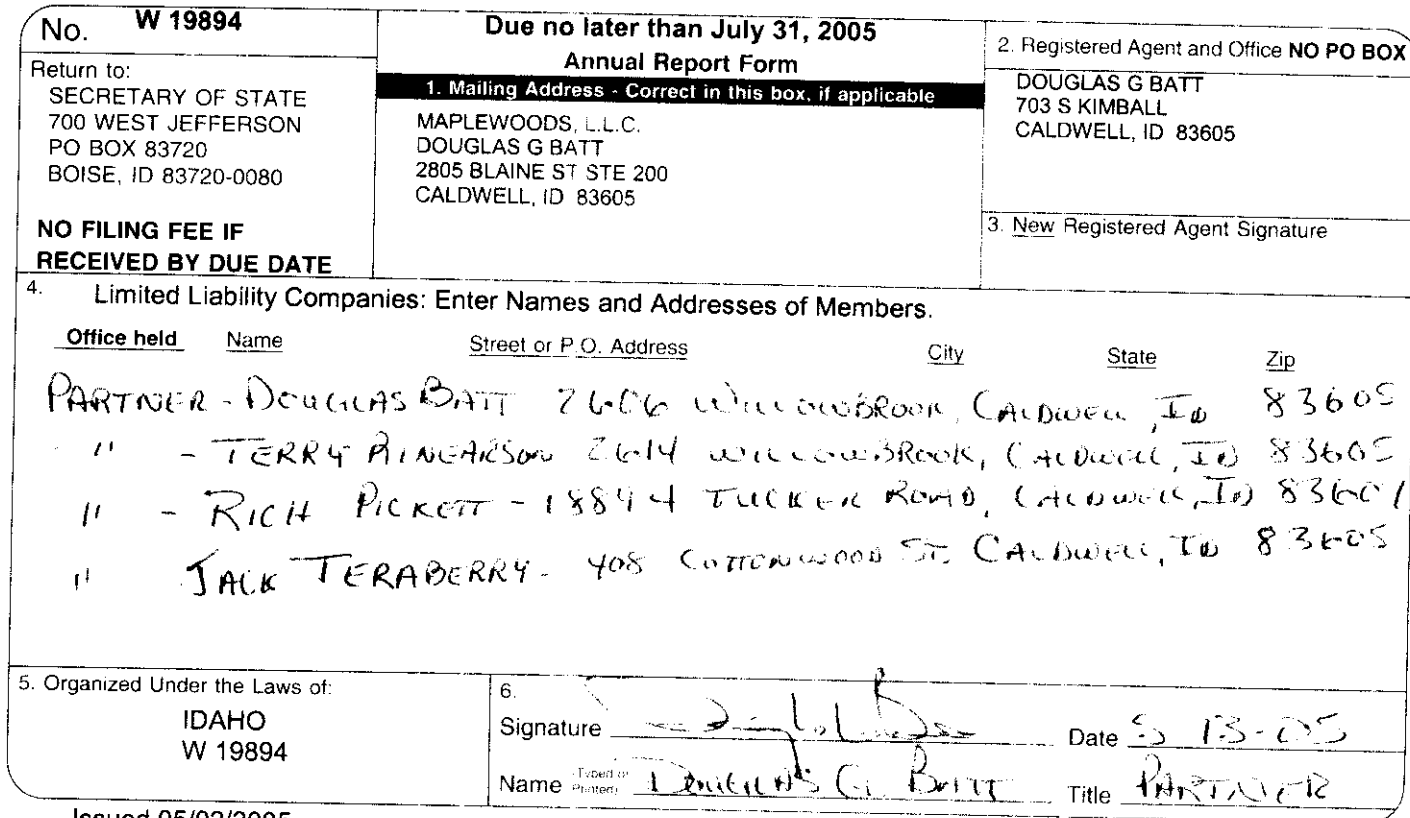 No. W 19894
Return to:
SECRETARY OF STATE
700 WEST JEFFERSON
PO BOX 83720
BOISE, ID 83720-0080
NO FILING FEE IF
RECEIVED BY DUE DATE
Due no later than July 31, 2005
Annual Report Form
1. Mailing Address - Correct in this box, if applicable
MAPLEWOODS, L.L.C.
DOUGLAS G BATT
2805 BLAINE ST STE 200
CALDWELL, ID 83605
2. Registered Agent and Office NO PO BOX
DOUGLAS G BATT
703 S KIMBALL
CALDWELL, ID 83605
3. New Registered Agent Signature
4. Limited Liability Companies: Enter Names and Addresses of Members.
Office held Name Street or P.O. Address City State Zip
PARTNER - DOUGLAS BATT 2606 WILLOWBROOK, CALDWELL, ID 83605
" - TERRY RINEARSON 2614 WILLOWBROOK, CALDWELL, ID 83605
" - RICH PICKETT - 18844 TUCKER ROAD, CALDWELL, ID 83607
" JACK TERABERRY - 408 COTTONWOOD ST. CALDWELL, ID 83605
5. Organized Under the Laws of:
IDAHO
W 19894
6.
Signature Date 5 13-05
Name (Typed or Printed) DOUGLAS G. BATT Title PARTNER
Issued 05/02/2005